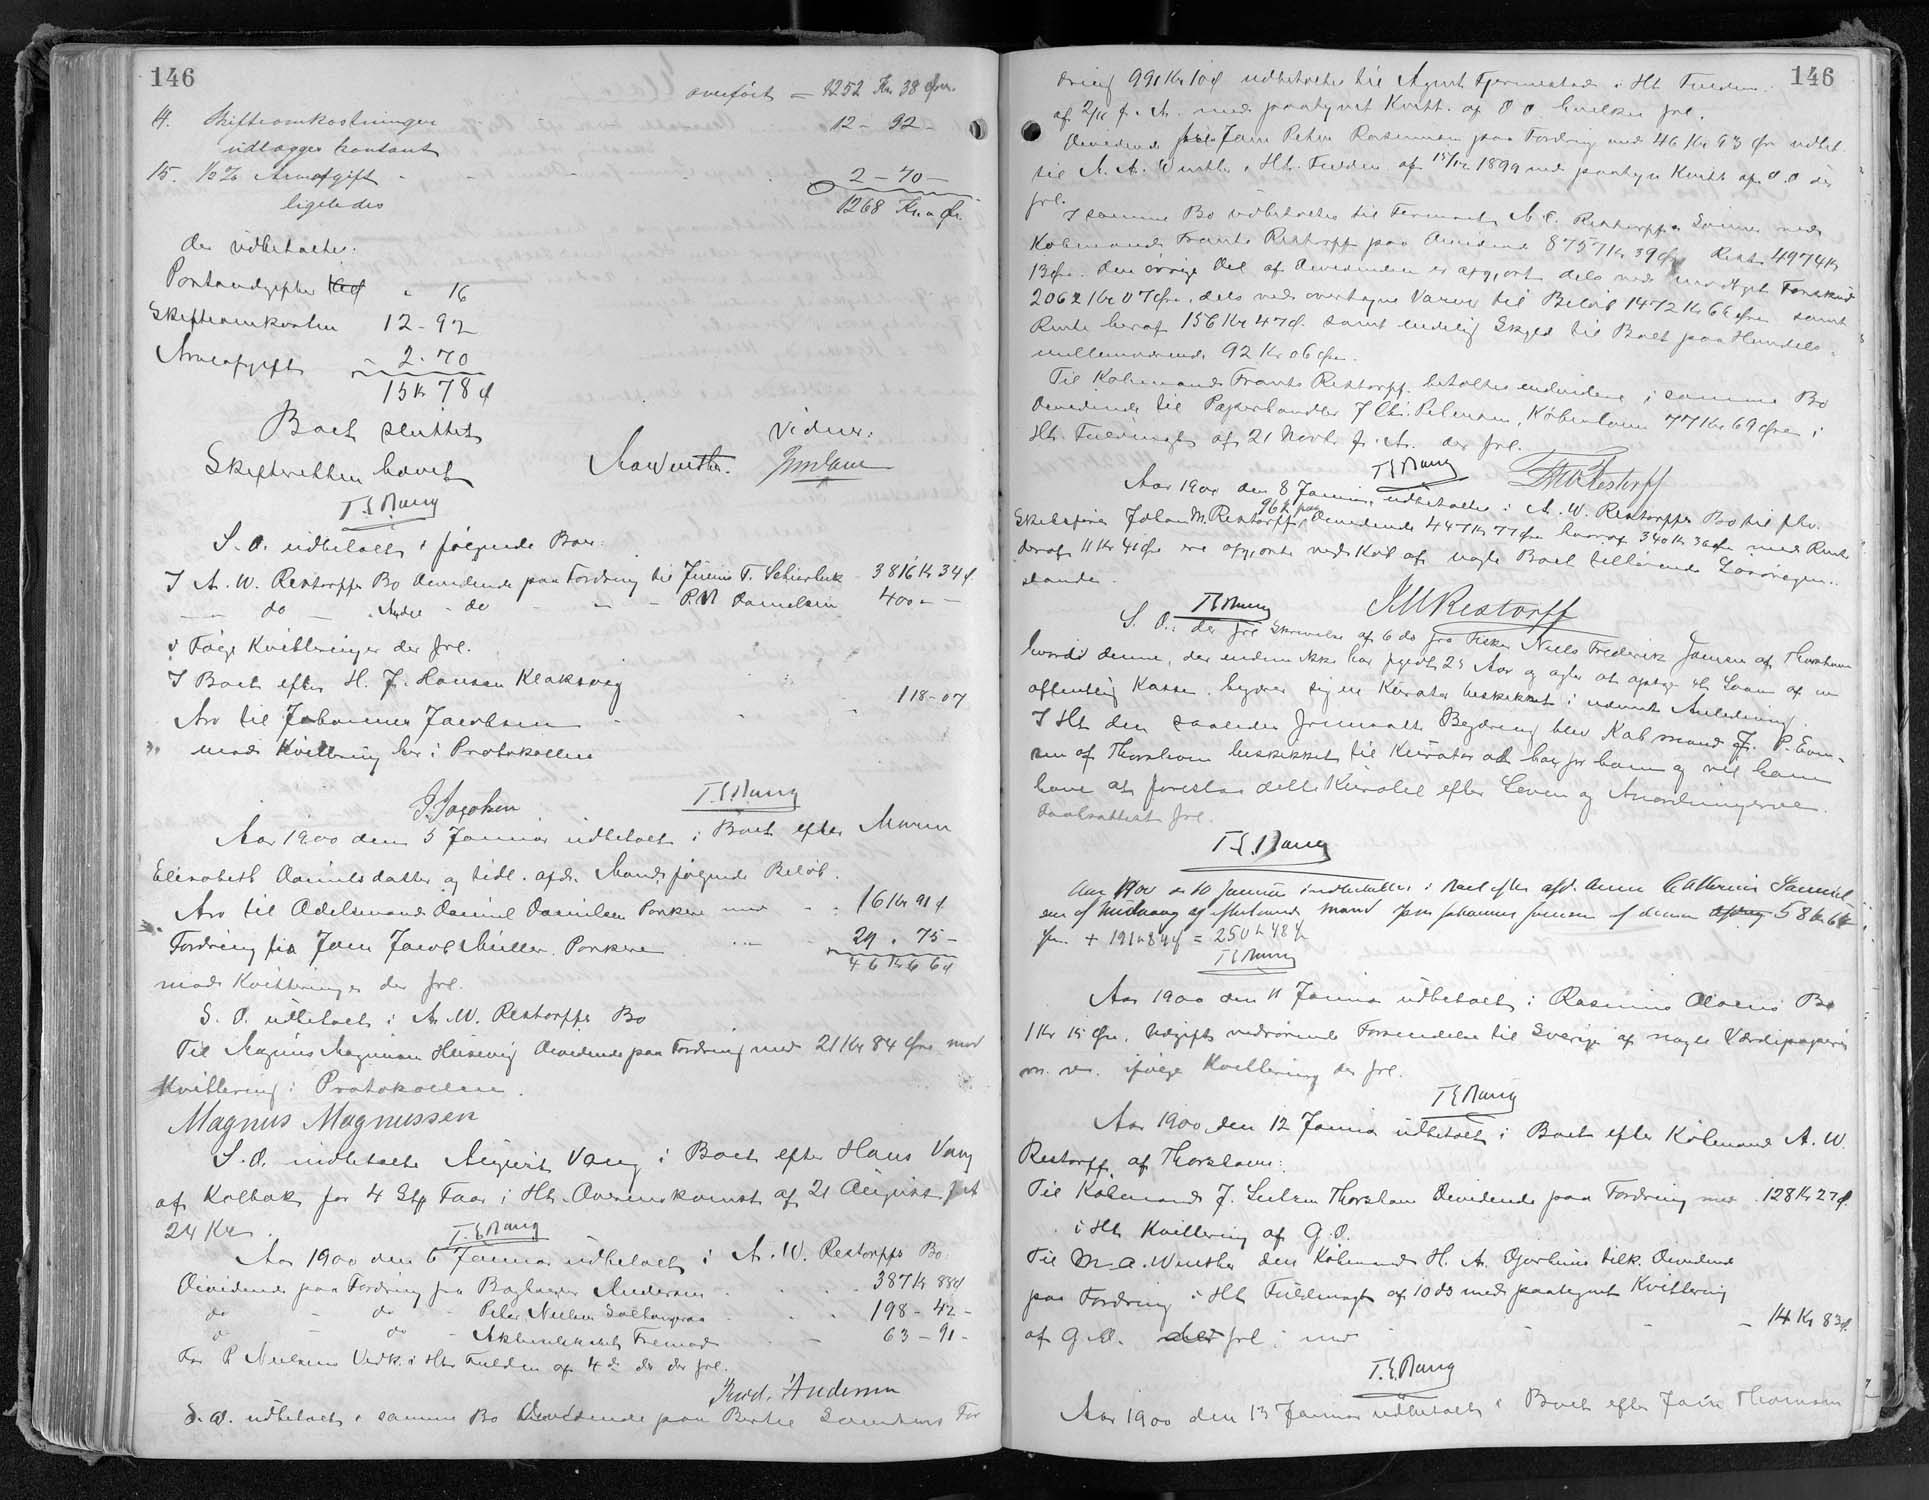 146
overført = 1252 Kr. 38 Øre.
14. Skifteomkostninger 12 - 92 -
udlægges kontant
15. 1/2 % Arveafgift - 2 - 70 -
ligeledes 1268 Kr. " Ør.
der udbetaltes:
Portoudgifter " 16
Skifteomkostn 12 - 92
Arveafgift 2 - 70
15 Kr 78 Ø
Boet sluttet
Vidner:
Skifteretten hævet
S. D. udbetalt i følgende Boer:
I A. W. Restorffs Bo Dividende paa Fordring til Julius T. 3816 Kr 34 Ø
do - do - Danielsen 400 " -
i Følge Kvitteringer der frl.
I Boet efter H. J. Hansen Klaksvig
Arv til Johannes Jacobsen - 118 - 07
mod Kvittering her i Protokollen
J. Jacobsen
Aar 1900 den 5 Januar udbetalt i Boet efter Maren
Elisabeth Danielsdatter og tidl. afd. Mand følgende Beløb.
Arv til Odelsmand Daniel Danielsen Porkere med - 16 Kr 91 Ø
Fordring fra Joen Jacob Müller. Porkere 29 . 75 -
46 Kr 66 Ø
mod Kvitteringer der frl.
S. D. udbetalt i A. W. Restorffs Bo
Til Magnus Magnussen Dividende paa Fordring med 21 Kr 84 Øre mod
Kvittering i Protokollen.
Magnus Magnussen
S. D. indbetalte August Vang i Boet efter Hans Vang
af Kolbak for 4 Stk Faar i Ht. Overenskomst af 21 August f. A.
24 Kr.
Aar 1900 den 6 Januar udbetalt i A. W. Restorffs Bo.
Dividende paa Fordring fra Andersen - 387 Kr 88 Ø
do - do - Peter Nielsen 198 - 42 -
do - do - Aktieselskabet Fremad 63 - 91 -
For P. Nielsens Vedk. i Ht. Fuldm. af 4 ds der frl.
Andersen
S. D. udbetalt i samme Bo Dividende paa For
146
dring 991 Kr 10 Ø udbetaltes til Agent i Ht Fuldm.
af f. A. med paategnet Kvitt. af D. D. hvilken frl.
Dividende Peter Rasmussen paa Fordring med 46 Kr 93 Øre udbet.
til A. A. Winther i Ht. Fuldm. af 1899 med paategn. Kvitt. af D. D. der
frl.
I samme Bo udbetaltes til Firmaet M. C. Restorff & Sønner ved
Købmand Frants Restorff paa Dividende 8757 Kr 39 Øre Rest 4974 Kr
13 Øre. Den øvrige Del af Dividenden er afgjort dels ved modtaget Forskud
2062 Kr 07 Øre, dels ved overtagne Varer til Beløb 1472 Kr 66 Øre samt
Rente heraf 156 Kr 47 Ø. samt endelig Skyld til Boet paa Handels-
mellemværende 92 Kr 06 Øre.
Til Købmand Frants Restorff betaltes endvidere i samme Bo
Dividende til Papirhandler København 77 Kr 69 Øre i
Ht. Fuldmagt af 21 Novbr f. A. der frl.
Aar 1900 den 8 Januar udbetaltes i A. W. Restorffs Bo til fhv.
Skibsfører Johan M. Restorff Dividende 447 Kr 77 Øre hvoraf 340 Kr 36 Øre med Rente
deraf 11 Kr 41 Øre ere afgjorte ved Køb af nogle Boet tilhørende Løsøregjen-
stande.
J M Restorff
S. D.: der frl Skrivelse af 6 ds fra Fisker Niels Frederik Jensen af Thorshavn
hvordi denne, der endnu ikke har fyldt 25 Aar og agter at optage et Laan af en
offentlig Kasse, begærer sig en Kurator beskikket i nævnte Anledning.
I Ht den saaledes fremsatte Begæring blev Købmand J. P. Even-
sen af Thorshavn beskikket til Kurator ad hoc for ham og vil ham
have at forestaa dette Kuratel efter Loven og Anordningerne.
Daabsattest frl.
Aar 1900 d. 10 Januar indbetaltes i Boet efter afd. Anne Cathrine Samuel
sen af Midvaag og efterlevende Mand Johannes Jensen af denne 58 Kr 64
Øre + 191 Kr 84 Ø = 250 Kr 48 Ø
Aar 1900 den 11 Januar udbetalt i Rasmus Olsens Bo
1 Kr 15 Øre. Udgifter vedrørende Forsendelse til Sverige af nogle Værdipapirer
m. v. ifølge Kvittering der frl.
Aar 1900 den 12 Januar udbetalt i Boet efter Købmand A. W.
Restorff af Thorshavn:
Til Købmand J. Thorshavn Dividende paa Fordring med 128 Kr 27 Ø.
i Ht Kvittering af G. D.
Til M. A. Winther den Købmand H. A. Djurhuus tilk. Dividende
paa Fordring i Ht Fuldmagt af 10 ds med paategnet Kvittering
af G. D. frl. med - 14 Kr 83 Ø.
Aar 1900 den 13 Januar udbetalt i Boet efter Thomsen